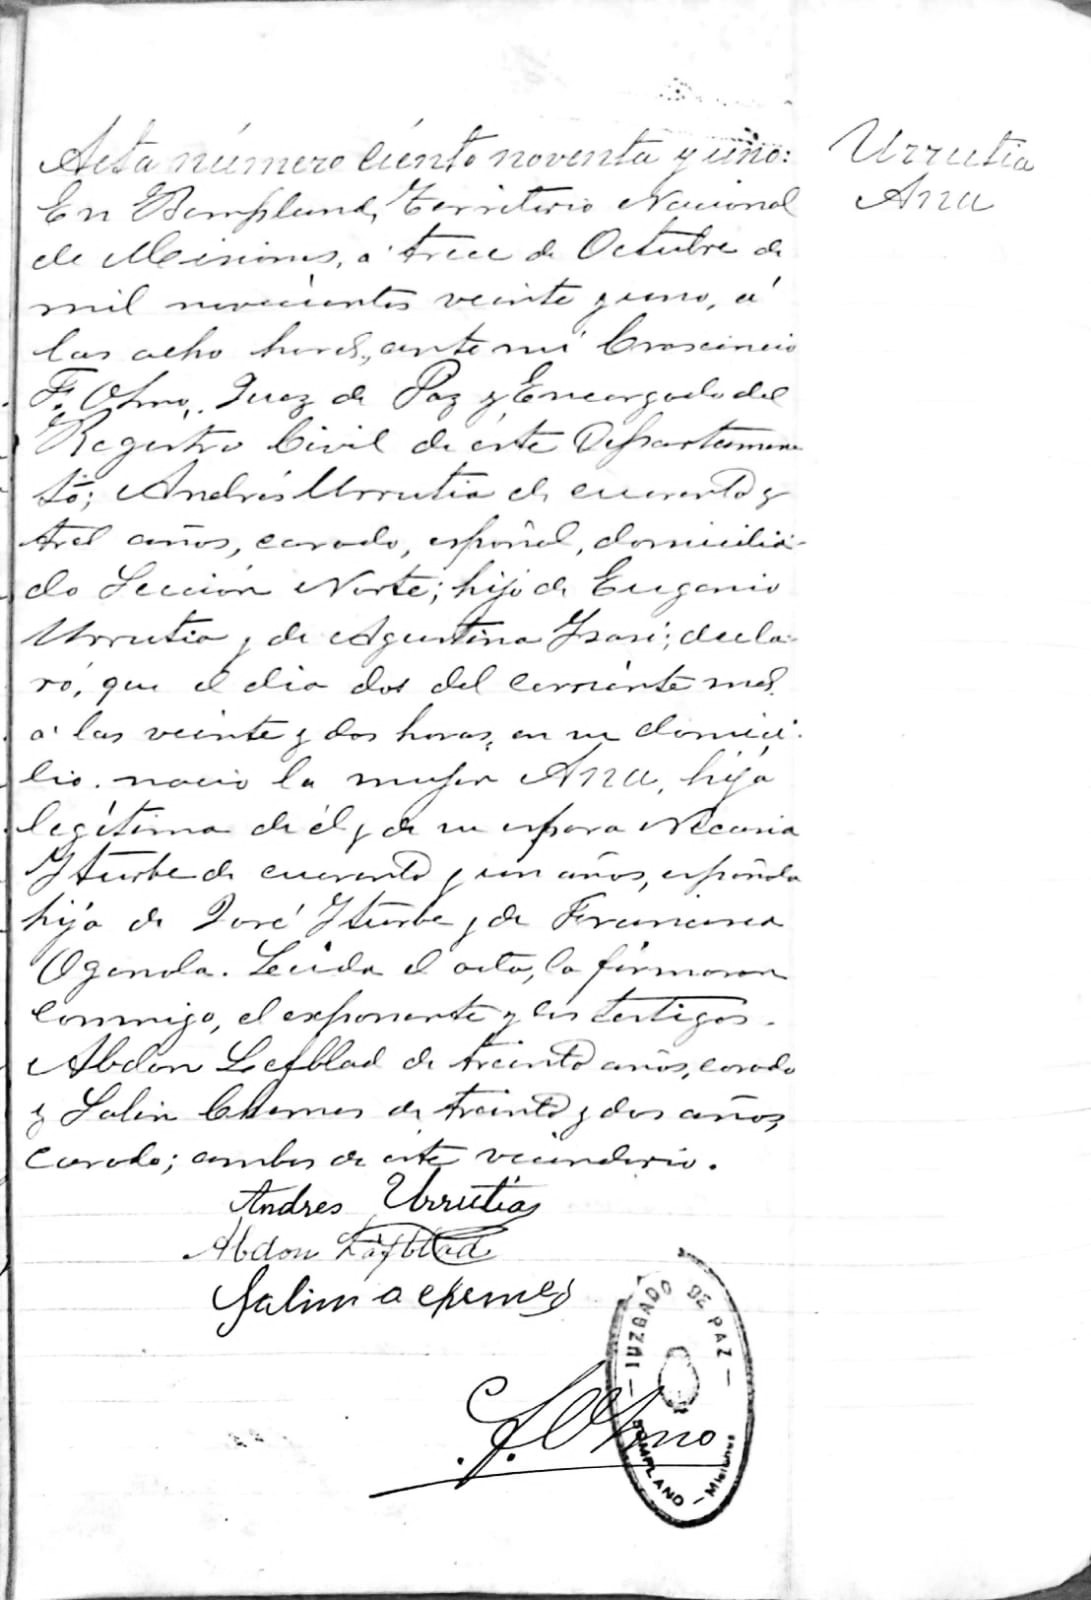 Acta número ciento noventa y uno:
Urrutia
Ana
En Bompland, Territorio Nacional
de Misiones, á trece de Octubre de
mil novecientos veinte y uno, á
las ocho horas, ante mí Crescencio
F. Olmo, Juez de Paz y Encargado del
Registro Civil de éste Departamen
to; Andrés Urrutia de cuarenta y
tres años, casado, español, domicilia-
do Sección Norte; hijo de Eugenio
Urrutia y de Agustina Ysasi; decla-
ró, que el dia dos del corriente mes
a las veinte y dos horas, en su domici-
lio. nació la mujer Ana, hija
legítima de él y de su esposa
Yturbe de cuarenta y un años, española
hija de José Yturbe y de Francisca
Leida el acta, la firmaron
conmigo, el exponente y los testigos.
Abdon de treinta años, casado
y Salin de treinta y dos años,
casado; ambos de éste vecindario.
Andres Urrutia
Abdon
Salim
F. Olmo
JUZGADO DE PAZ
BOMPLAND - Misiones